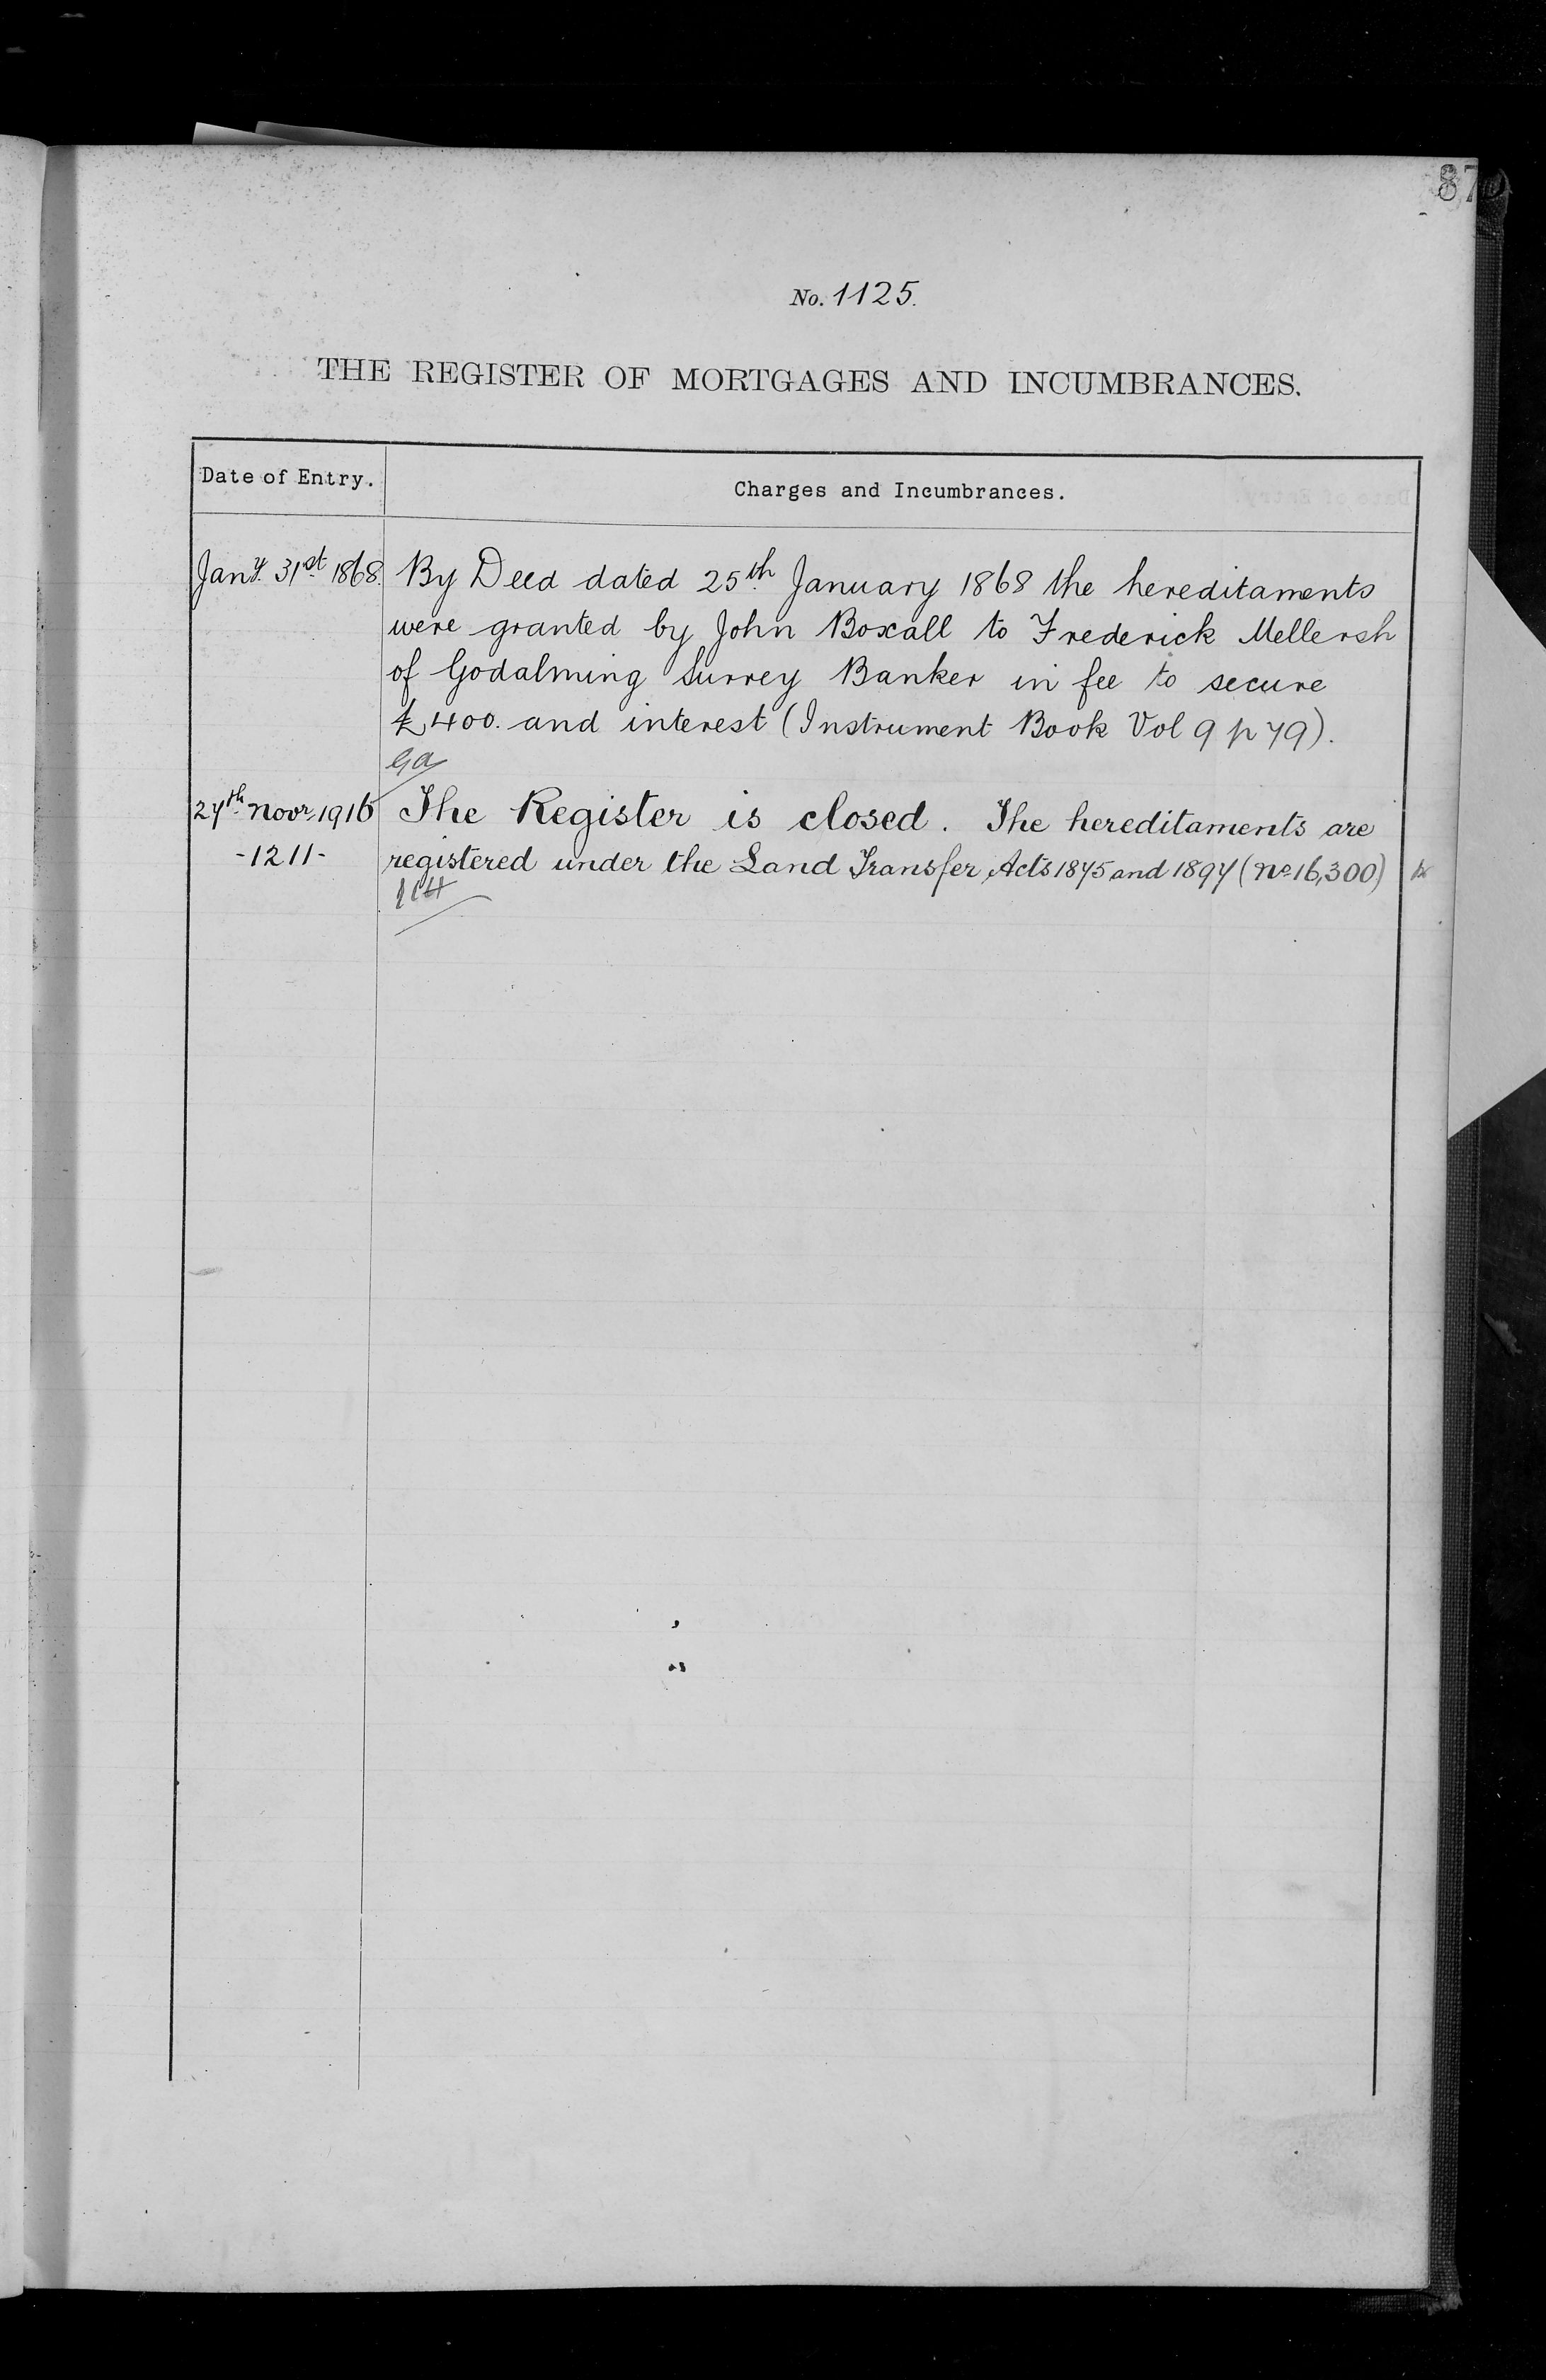 87
No. 1125.
THE REGISTER OF MORTGAGES AND INCUMBRANCES.
Date of Entry.
Charges and Incumbrances.
Jany. 31st 1868. By Deed dated 25th January 1868 the hereditaments
were granted by John Boxall to Frederick Mellersh
of Godalming Surrey Banker in fee to secure
£400. and interest (Instrument Book Vol 9 p 79).
27th Novr. 1916 The Register is closed. The hereditaments are
-1211- registered under the Land Transfer Acts 1875 and 1897 (No 16,300)